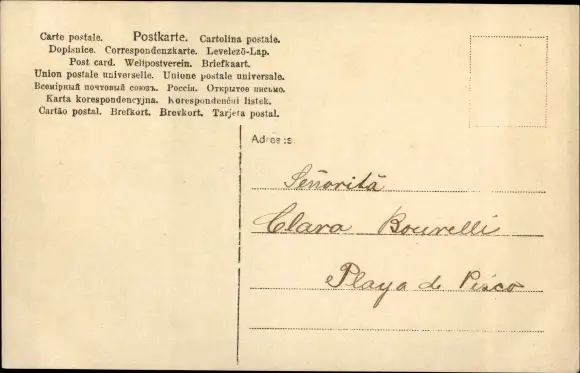 Carte postale. Postkarte. Cartolina postale.
Dopisnice. Correspondenzkarte. Levelező-Lap.
Post card. Weltpostverein. Briefkaart.
Union postale universelle. Unione postale universale.
Всемірный почтовый союзъ. Россія. Открытое письмо.
Karta korespondencyjna. Korespondenční lístek.
Cartão postal. Brefkort. Brevkort. Tarjeta postal.
Señoritá
Clara Bourelli
Playa de Pisco